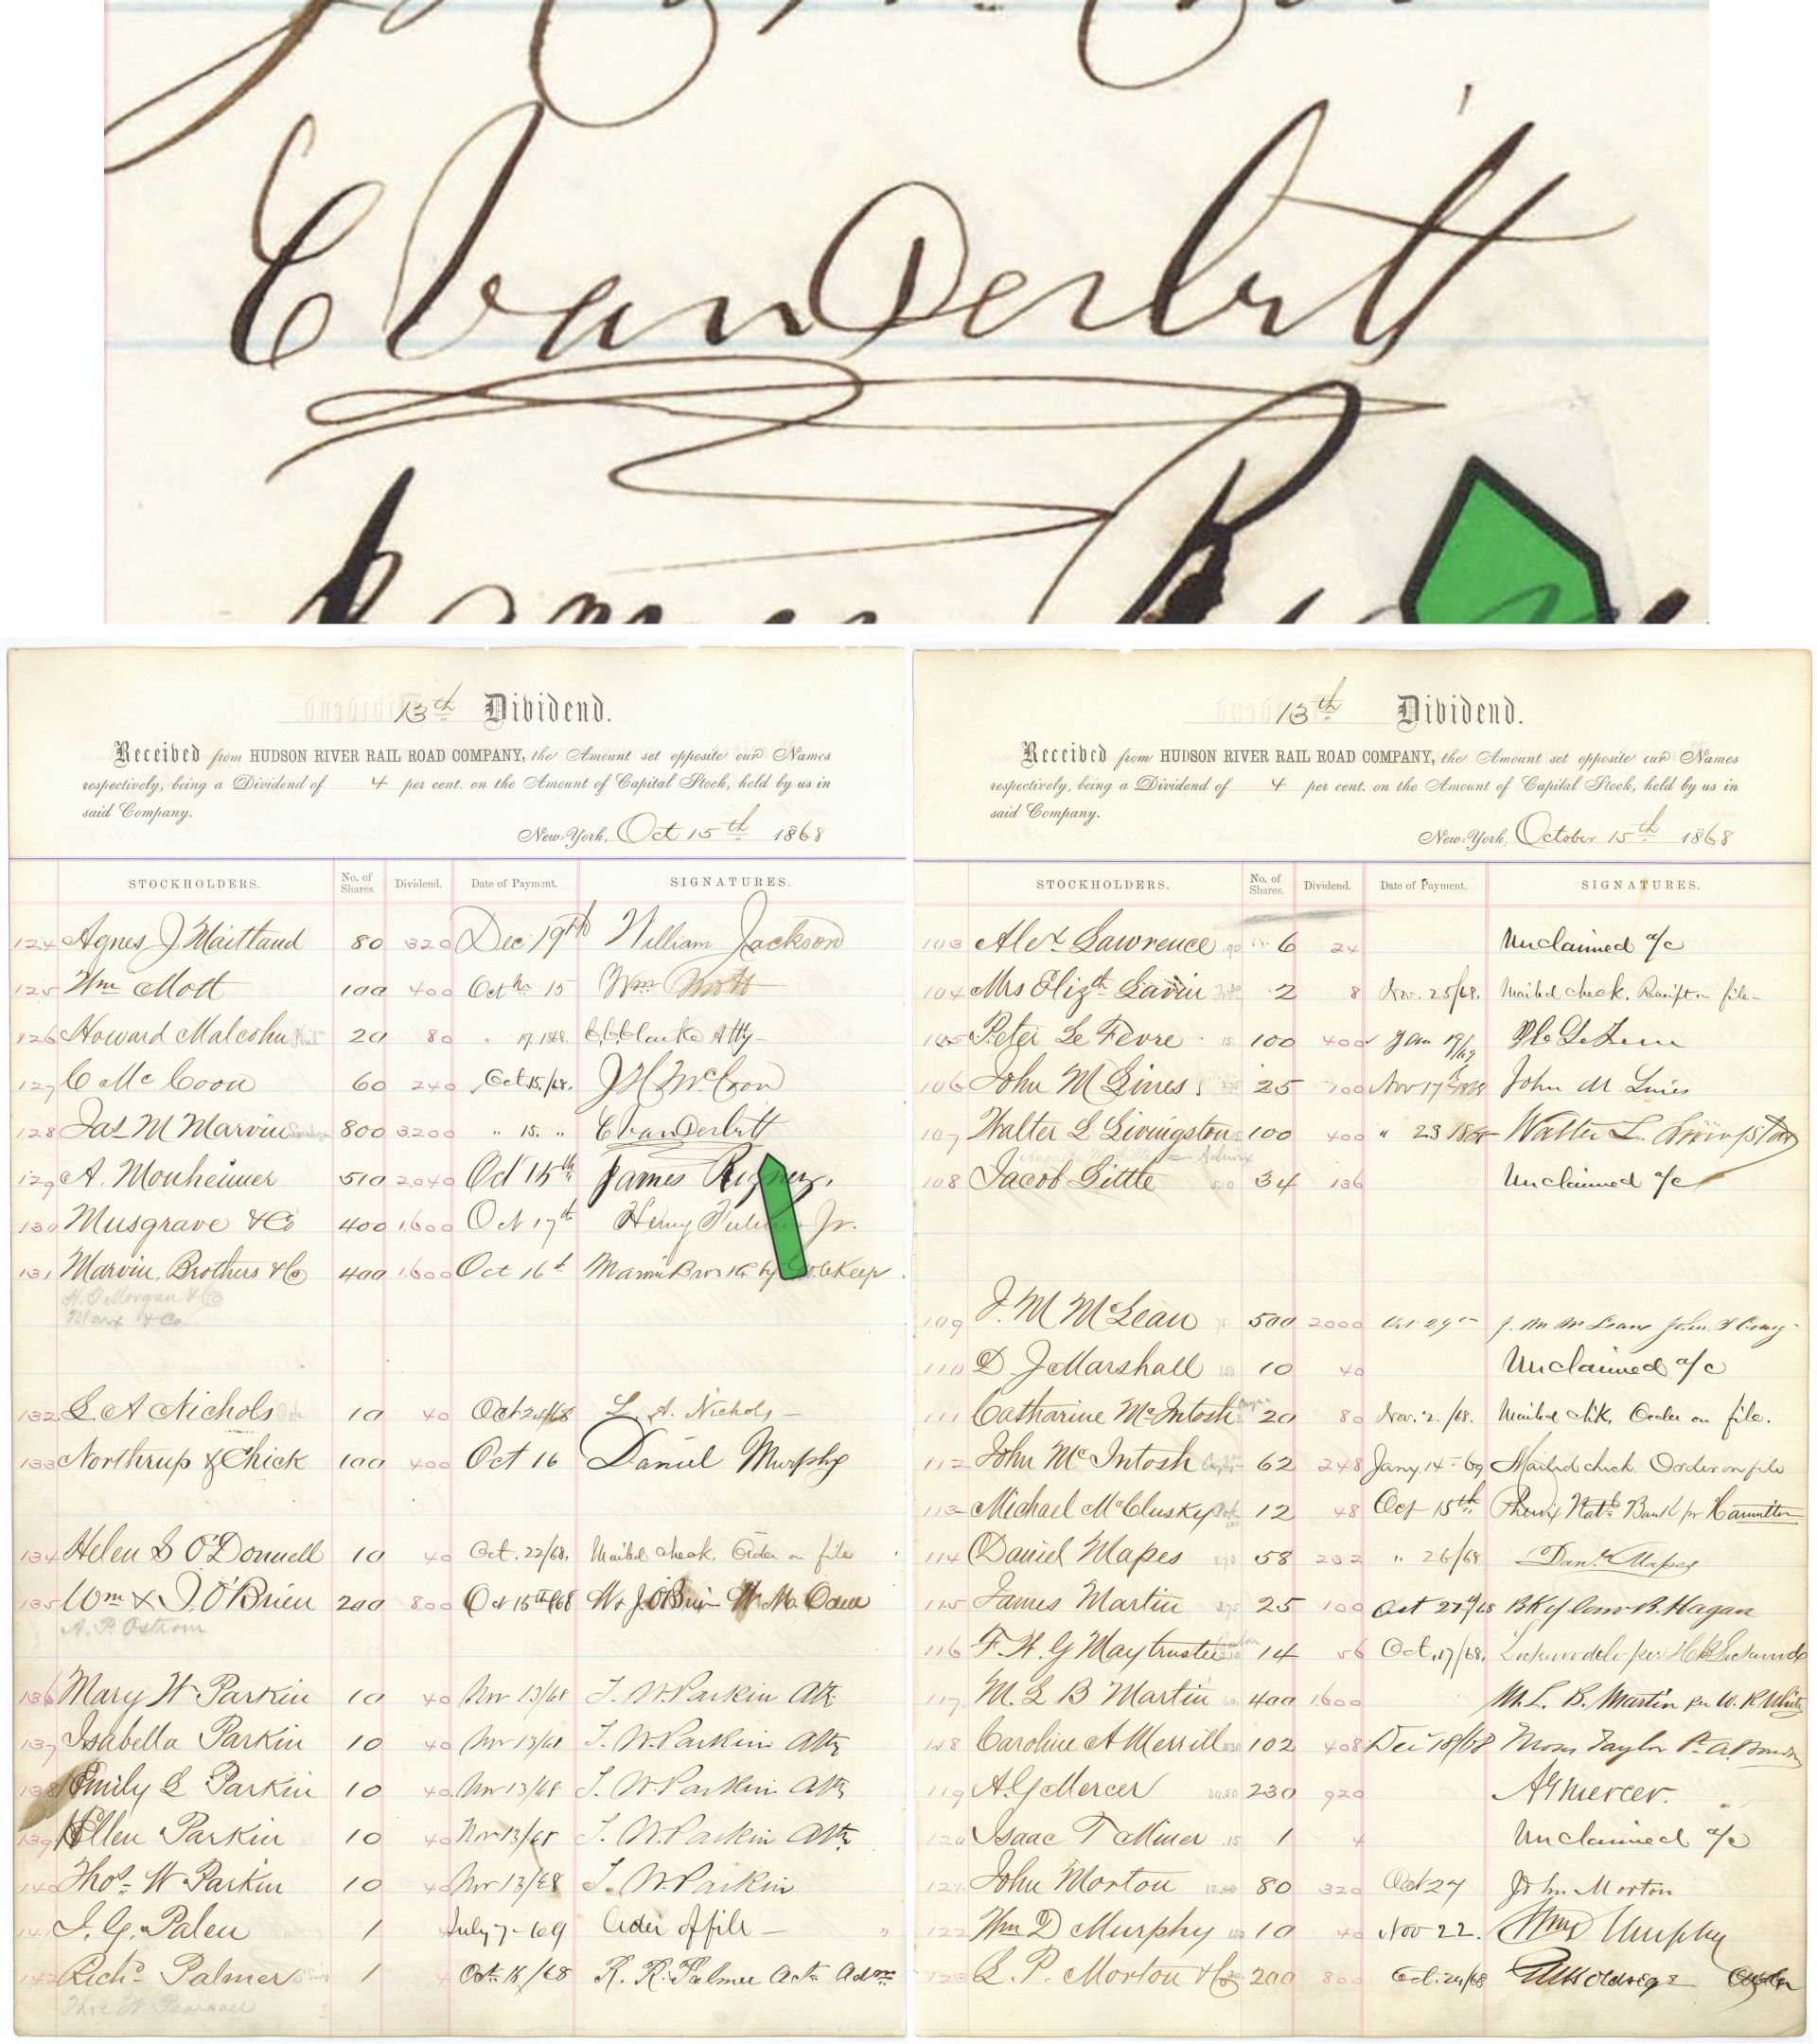 C VanDerbilt
13th Dividend.
Received from HUDSON RIVER RAIL ROAD COMPANY, the Amount set opposite our Names
respectively, being a Dividend of 4 per cent. on the Amount of Capital Stock, held by us in
said Company.
New-York, Oct 15th 1868
STOCKHOLDERS. No. of Shares. Dividend. Date of Payment. SIGNATURES.
124 Agnes J Maitland 80 320 Dec 19th William Jackson
125 Wm Mott 100 400 Octbr 15 Wm Mott
126 Howard Malcohn 20 80 " 19 1868. C.C. Clarke Atty
127 C McCoon 60 240 Oct 15./68. J H McCoon
128 Jas M Marvin 800 3200 " 15. " C VanDerbilt
129 A. Monheimer 510 2,040 Oct 15th James
130 Musgrave & Co 400 1.600 Oct 17th Henry Jr.
131 Marvin, Brothers & Co 400 1.600 Oct 16th Marvin Bros & Co by
H. T Morgan & Co
Marx & Co
132 L. A Nichols 10 40 Oct 24/68 L. A. Nichols
133 Northrup & Chick 100 400 Oct 16 Daniel Murphy
134 Helen S O'Donnell 10 40 Oct. 22/68. Mailed check. Order on file
135 Wm & J. O'Brien 200 800 Oct 15th/68 W & J. O'Brien W. M.
A. P. Ostrom
136 Mary W Parkin 10 40 Nov 13/68 T. W. Parkin Att
137 Isabella Parkin 10 40 Nov 13/68 T. W. Parkin Atty
138 Emily L Parkin 10 40 Nov 13/68 T. W. Parkin Atty
139 Ellen Parkin 10 40 Nov 13/68 T. W. Parkin Atty
140 Thos W Parkin 10 40 Nov 13/68 T. W. Parkin
141 J. G. Palen 1 4 July 7-69 Order
142 Richd Palmer 1 4 Oct. 15/68 R. R. Palmer
Thos W Pearsall
13th Dividend.
Received from HUDSON RIVER RAIL ROAD COMPANY, the Amount set opposite our Names
respectively, being a Dividend of 4 per cent. on the Amount of Capital Stock, held by us in
said Company.
New-York, October 15th 1868
STOCKHOLDERS. No. of Shares. Dividend. Date of Payment. SIGNATURES.
103 Alex Lawrence 6 24 Unclaimed a/c
104 Mrs Elizth Lavin 2 8 Nov. 25/68. Mailed check. Receipt on file
105 Peter Le Fevre 100 400 Jan 19/69
106 John M Lines 25 100 Nov 17th 1868 John M Lines
107 Walter L Livingston 100 400 " 23 1868 Walter L. Livingston
108 Jacob Little 34 136 Unclaimed a/c
109 J. M McLean 500 2000 Oct 29 J. M McLean John
110 D J Marshall 10 40 Unclaimed a/c
111 Catharine McIntosh 20 80 Nov. 2./68. Mailed chk, Order on file.
112 John McIntosh 62 248 Jany, 14-69 Mailed check Order on file
113 Michael McClusky 12 48 Oct 15th Phenix Natl Bank pr Hamilton
114 Daniel Mapes 58 232 " 26/68 Danl Mapes
115 James Martin 25 100 Oct 27th/68 B. Hagan
116 F. H. G May trustee 14 56 Oct, 17/68,
117 M. L B Martin 400 1600 M. L. B. Martin per W. R White
118 Caroline A Merrill 102 408 Dec 18/68 Moses Taylor
119 A. G Mercer 230 920 A G Mercer.
120 Isaac T Miner 1 4 Unclaimed a/c
121 John Morton 80 320 Oct 27 John Morton
122 Wm D Murphy 10 40 Nov 22. Wm D Murphy
123 L. P. Morton & Co 200 800 Oct. 24/68